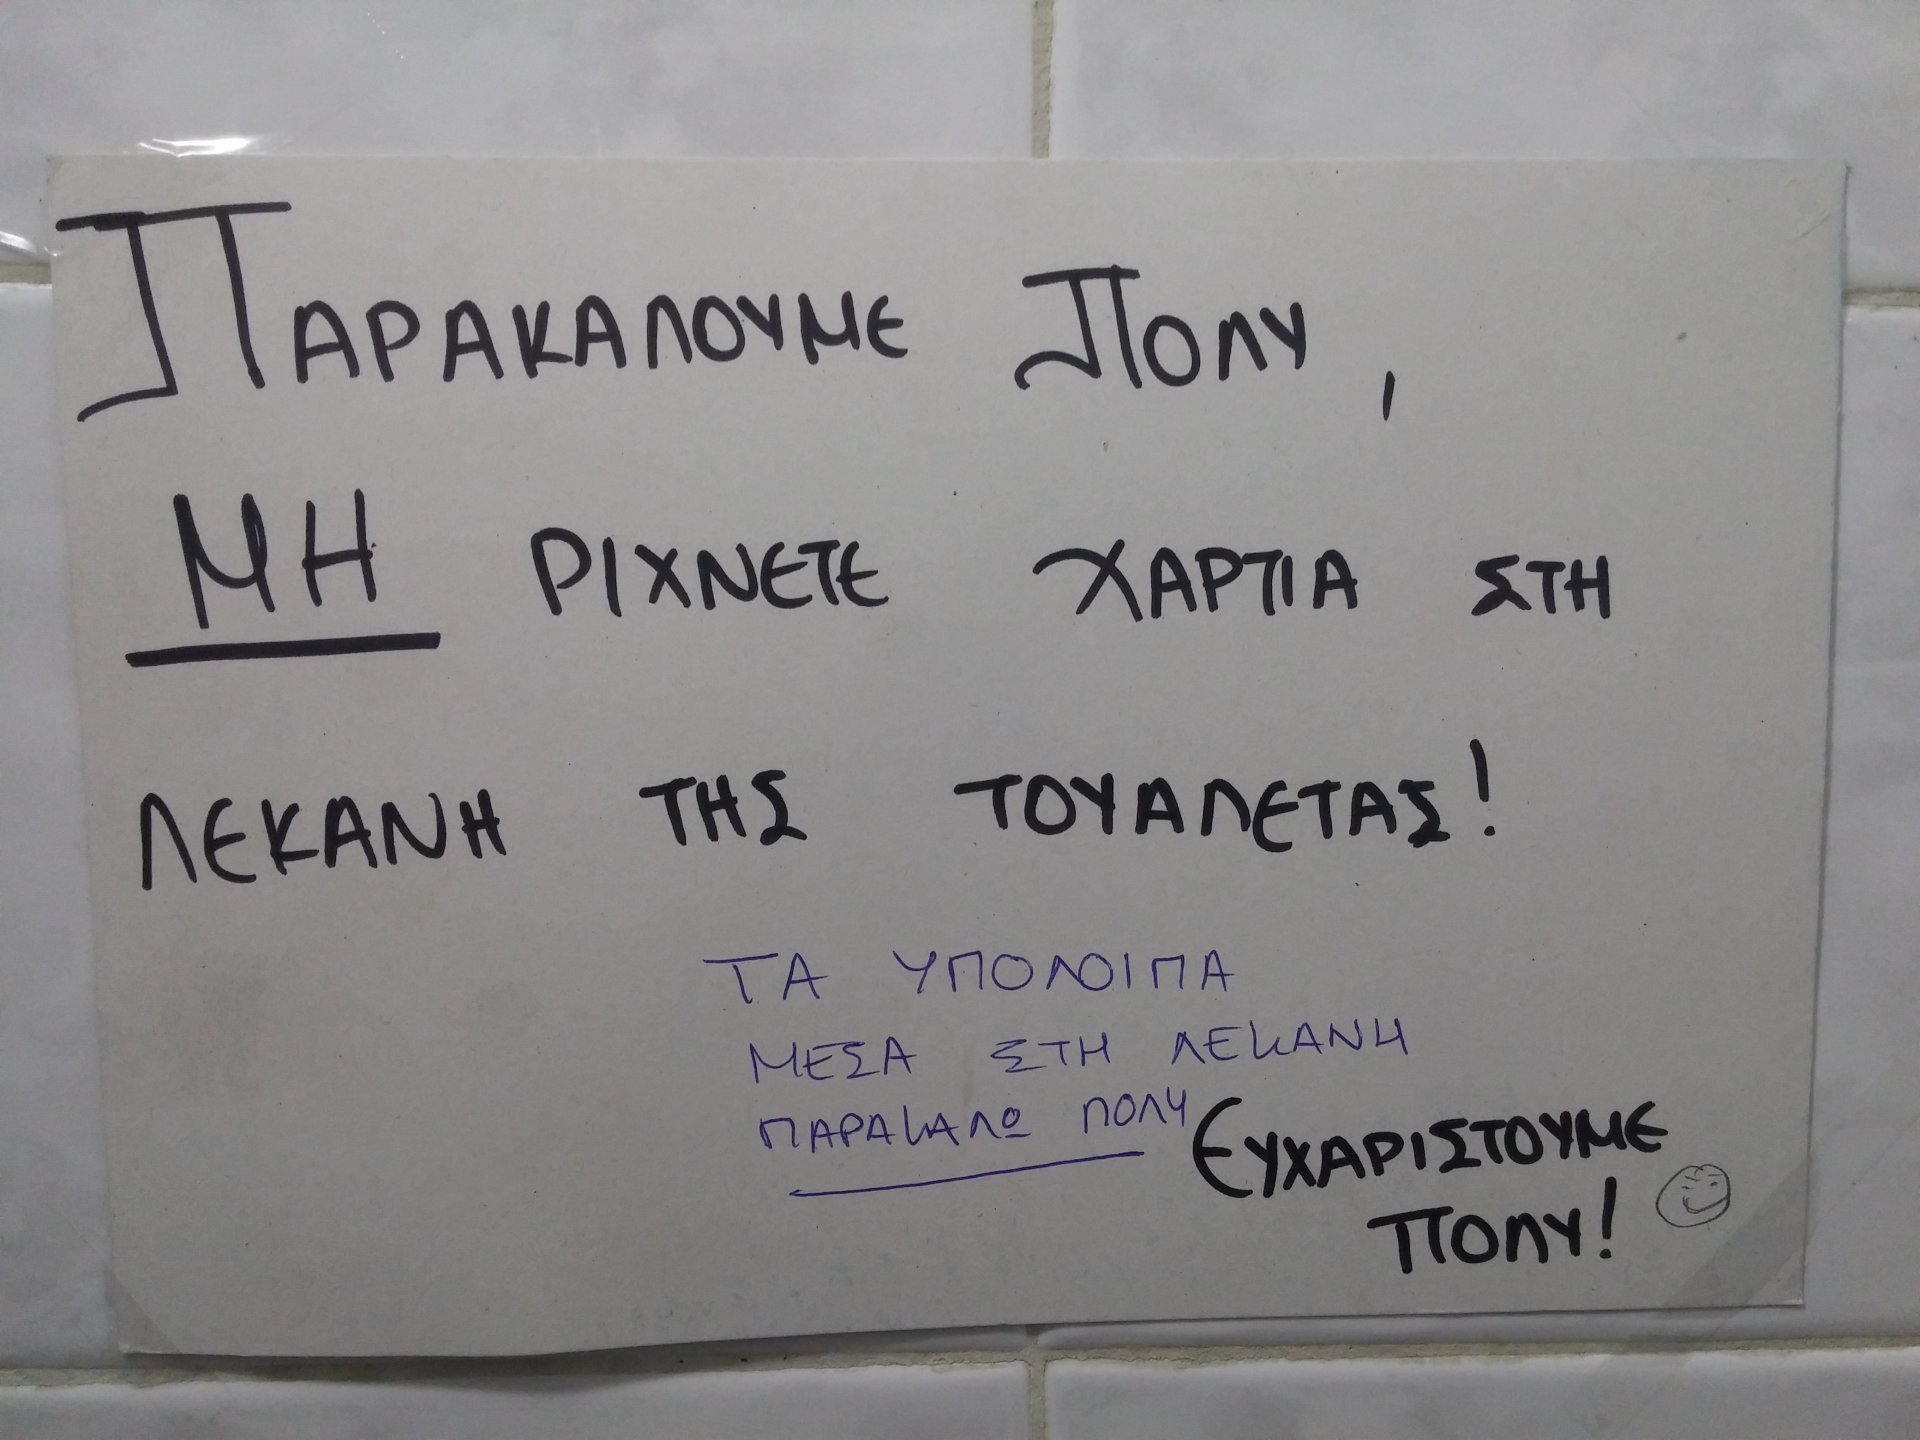 ΠΑΡΑΚΑΛΟΥΜΕ ΠΟΛΥ,
ΜΗ ΡΙΧΝΕΤΕ ΧΑΡΤΙΑ ΣΤΗ
ΛΕΚΑΝΗ ΤΗΣ ΤΟΥΑΛΕΤΑΣ!
ΤΑ ΥΠΟΛΟΙΠΑ
ΜΕΣΑ ΣΤΗ ΛΕΚΑΝΗ
ΠΑΡΑΚΑΛΩ ΠΟΛΥ
ΕΥΧΑΡΙΣΤΟΥΜΕ
ΠΟΛΥ!